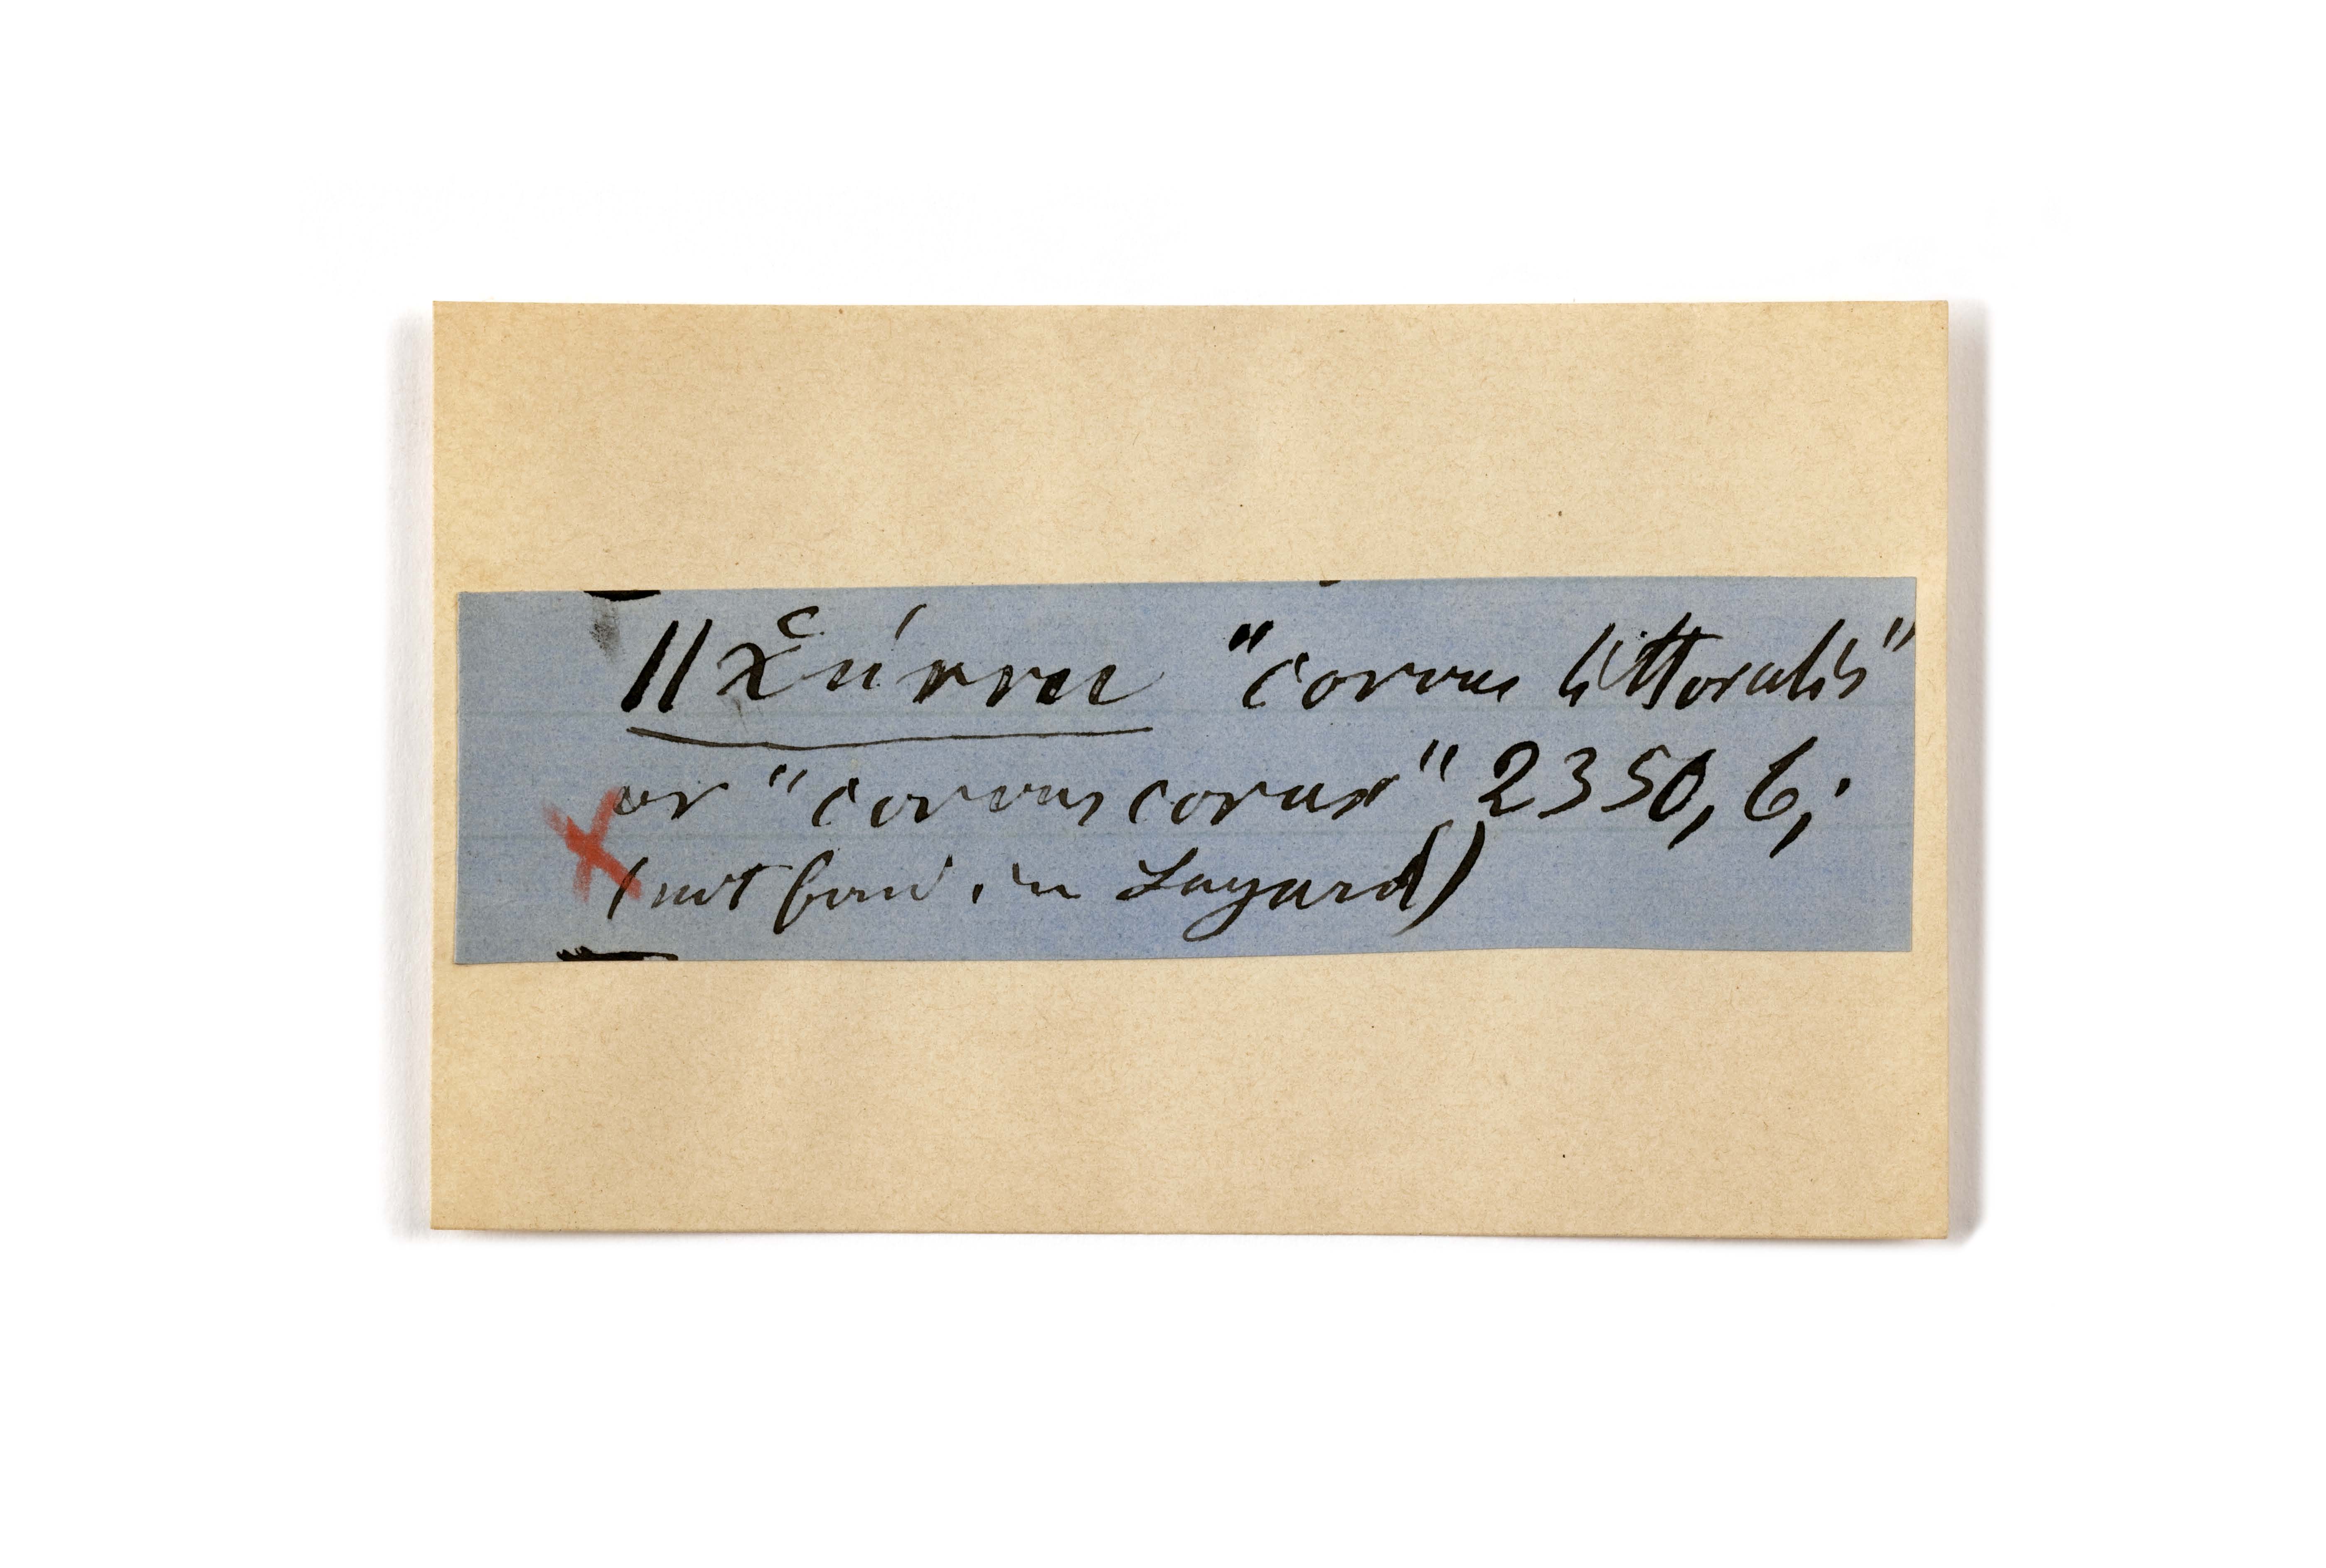 "corvus littoralis"
or "corvus corax" 2350, 6;
(not found in Layard)